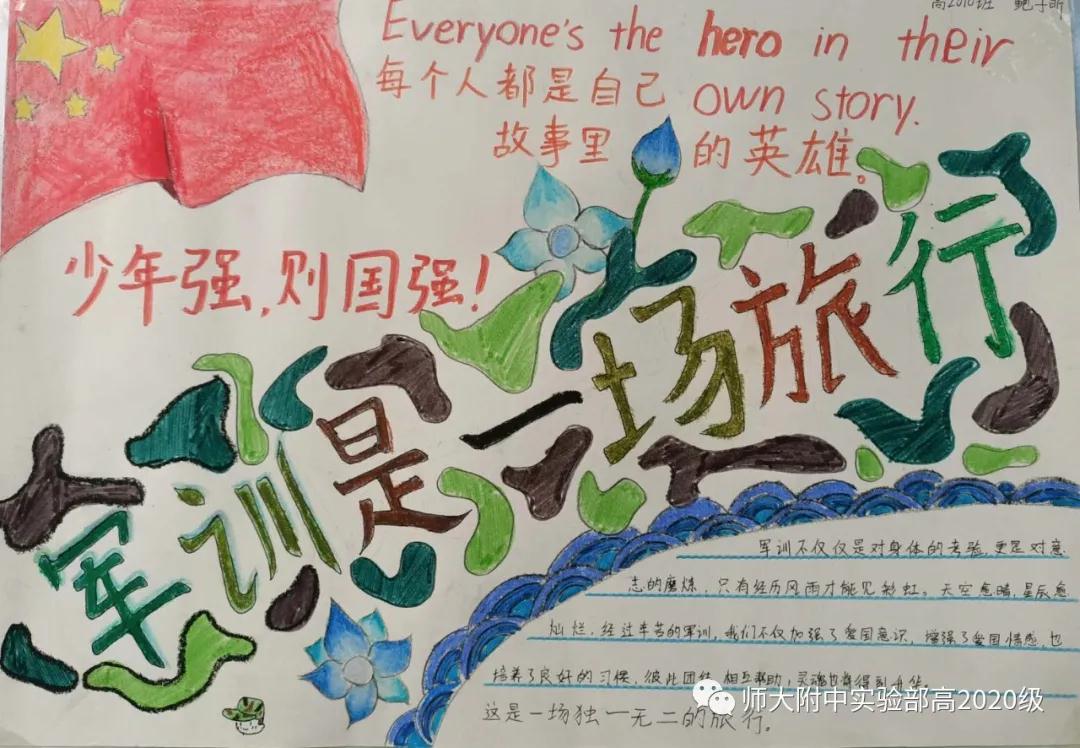 高2010班
Everyone's the hero in their
每个人都是自己 own story.
故事里 的英雄。
少年强,则国强!
军训是一场旅行
军训不仅仅是对身体的考验,更是对意
志的磨炼,只有经历风雨才能见彩虹。天空愈暗,星辰愈
灿烂,经过辛苦的军训,我们不仅加强了爱国意识,增强了爱国情感,也
培养了良好的习惯,彼此团结,相互帮助,灵魂也得到升华。
这是一场独一无二的旅行。
师大附中实验部高2020级